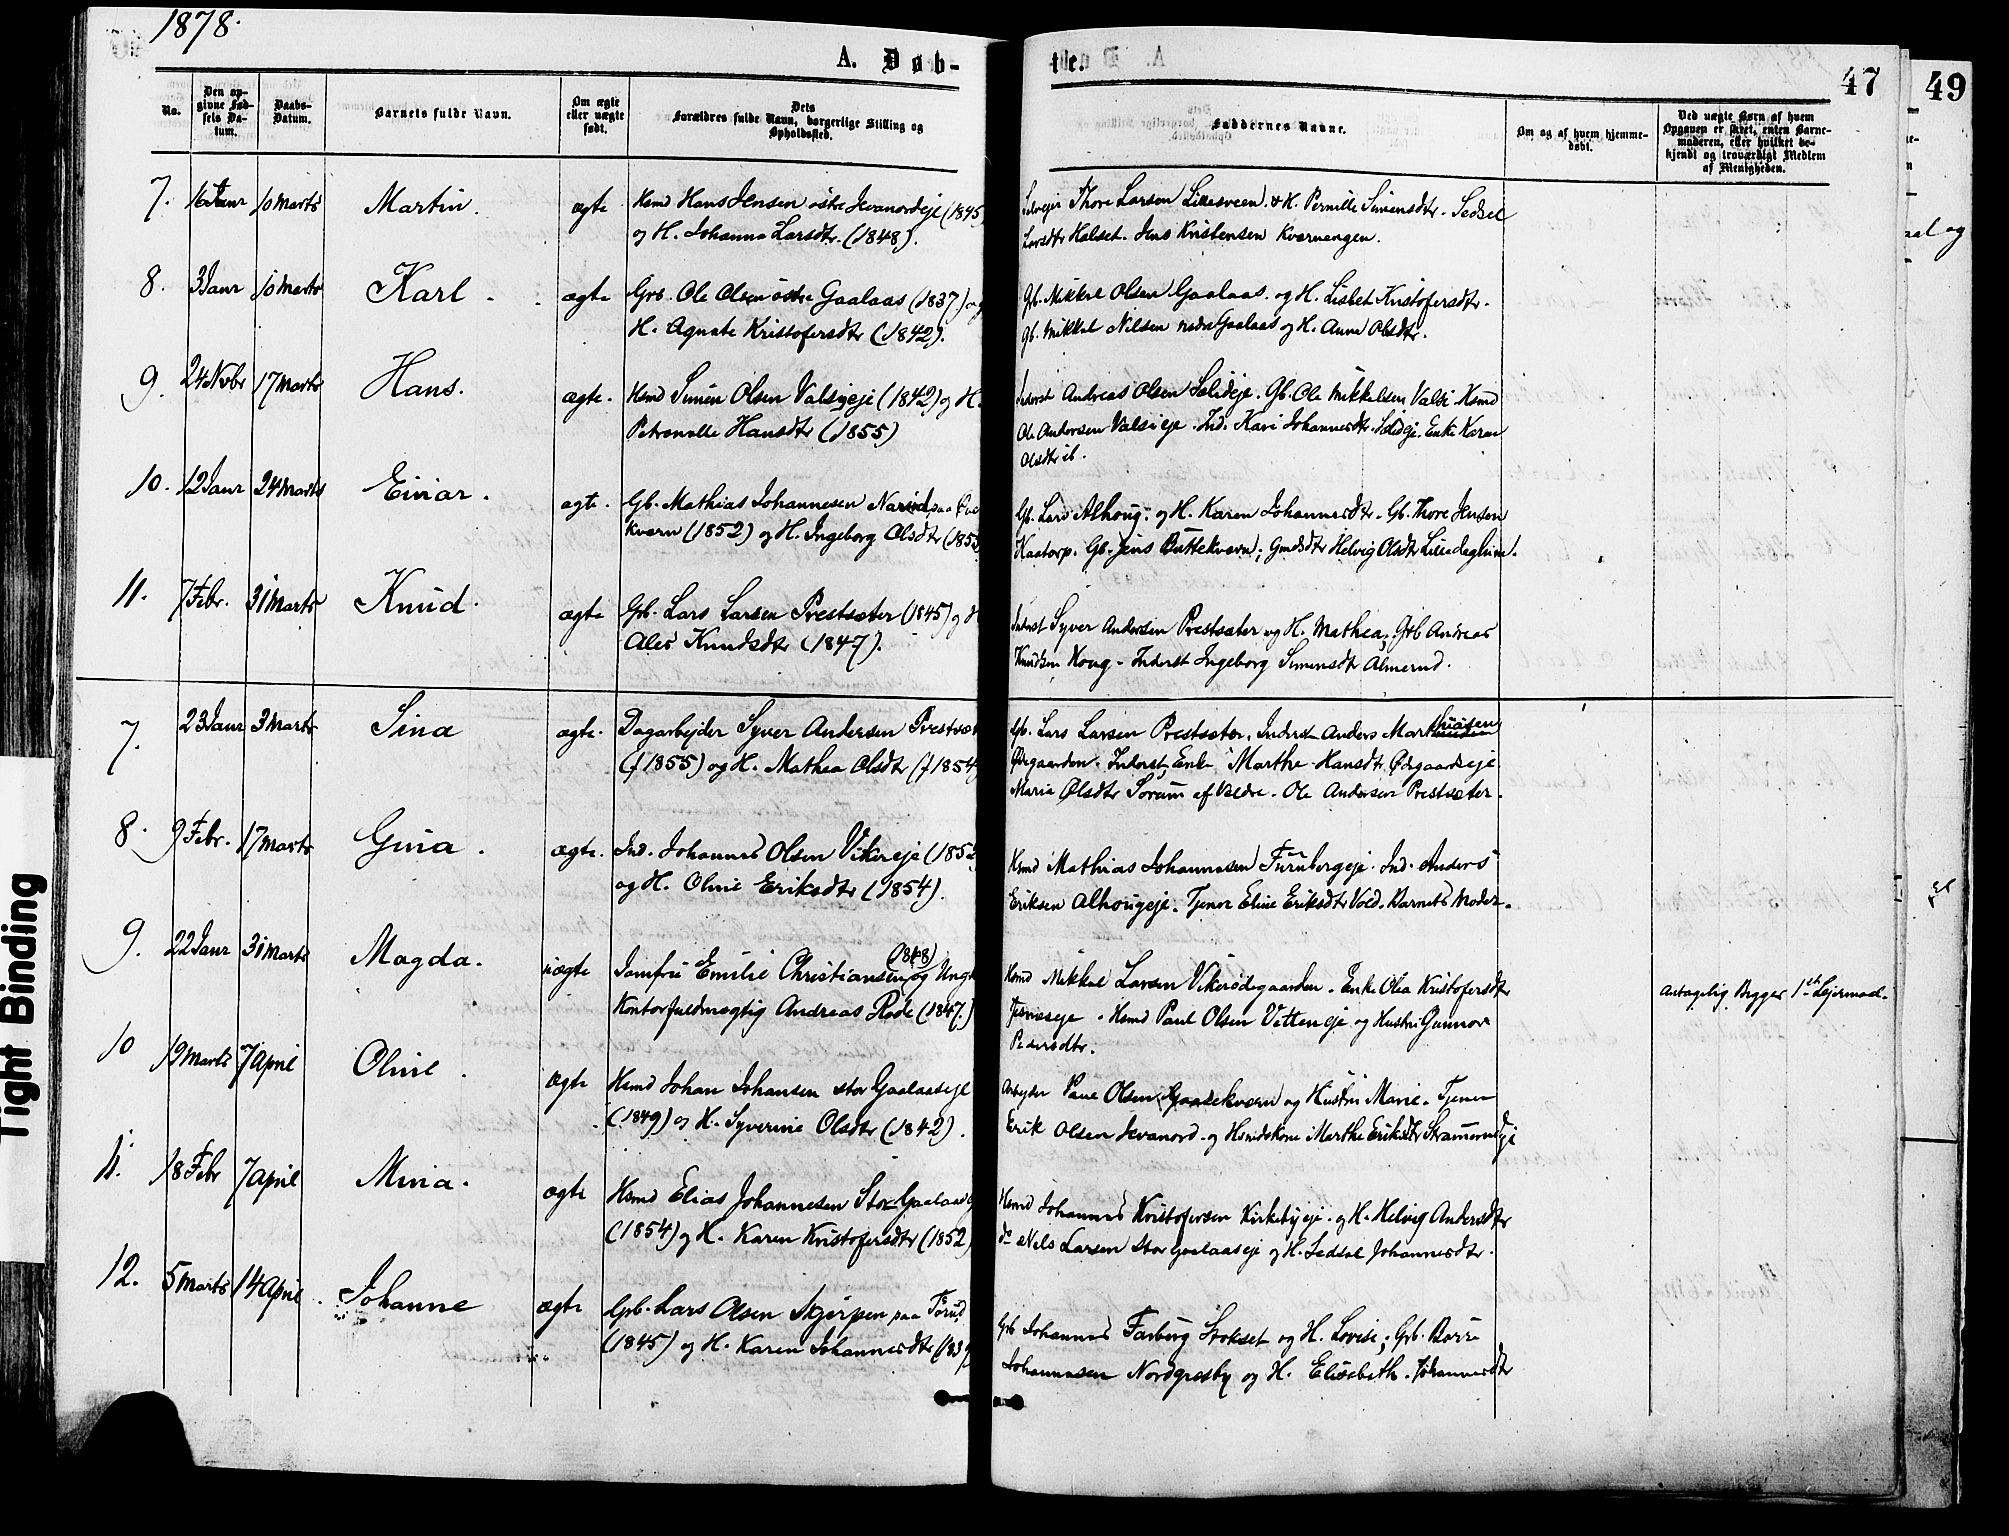 1878.
A. Døb-
te.
47
49
No.
Den op-
givne Fød-
sels Da-
tum.
Daabs-
Datum.
Barnets fulde Navn.
Om ægte
eller uægte
født.
Dets
Forældres fulde Navn, borgerlige Stilling og
Opholdssted.
Faddernes Navne.
Om og af hvem hjemme-
døbt.
Ved uægte Børn af hvem
Opgaven er skeet, enten Barne-
moderen, eller hvilket be-
kjendt og troværdigt Medlem
af Menigheden.
7. 16 Janr 10 Marts Martin. ægte Hsmd Hans Jensen østre Jevanordeje (1845)
og H. Johanna Larsdtr. (1848).
Selvejer Thore Larsen Lillesveen & H. Pernille Simensdtr. Sedsel
Larsdtr Halset. Jens Kristensen Kværnengen.
8. 3 Janr 10 Marts Karl ægte Grb. Ole Olsen østre Gaalaas (1837) og
H. Agnete Kristofersdtr (1842).
Gb. Mikkel Olsen Gaalaas og H. Lisbet Kristofersdtr.
Gb. Mikkel Nilsen nedre Gaalaas og H. Anne Olsdtr.
9. 24 Novbr 17 Marts Hans. ægte. Hsmd Simen Olsen Valsieje (1842) og H.
Petronelle Hansdtr (1855)
Inderst Andreas Olsen Solideje. Gb. Ole Mikkelsen Valsi. Hsmd
Ole Andersen Valsieje. Ind. Kari Johannesdtr. Enke Karen
Olsdtr ib.
10. 12 Janr 24 Marts Einar. ægte. Gb. Mathias Johannesen Narud paa
kværn (1852) og H. Ingeborg Olsdtr
Gb. Lars Alhoug. og H. Karen Johannesdtr. Gb. Thore Jensen
Kaatorp. Gb. Jens Buttekværn; Gmdsdtr Helvig Olsdtr
11. 7 Febr. 31 Marts Knud. ægte Gb. Lars Larsen Prestsæter (1845) og H
Ales Knudsdtr (1847).
Inderst Syver Andersen Prestsæter og H. Mathea; Grb Andreas
Knudsen Houg. Inderst Ingeborg Simensdtr Almerud.
7. 23 Janr 3 Marts Sina ægte. Dagarbejder Syver Andersen Prestsæt
(f 1855) og H. Mathea Olsdtr (f 1854)
Gb. Lars Larsen Prestsæter. Inderst Anders
Ødegaarden. Inderst, Enke Marthe Hansdtr Ødegaardseje
Marie Olsdtr Sorum af Valdre. Ole Andersen Prestsæter.
8. 9 Febr. 17 Marts Gina. ægte. Ind. Johannes Olsen Vikereje (1852
og H. Oline Eriksdtr (1854).
Hsmd Mathias Johannesen Furubergeje. Ind. Anders
Eriksen Alhougeje. Tjener Eline Eriksdtr Vold. Barnets Moder.
9. 22 Janr 31 Marts Magda. uægte Jomfru Emilie Christiansen (1848) og Ungk
Kontorfuldmægtig Andreas Rode (1847.)
Hsmd Mikkel Larsen Vikerødegaarden. Enke Olea Kristofersdtr
Hsmd Paul Olsen Vetteneje og Hustru Gunnor
Pedersdtr.
Antagelig Begges 1ste Lejermaal.
10 19 Marts 7 April Oline ægte Hsmd Johan Johansen stor Gaalaaseje
(1849) og H. Syverine Olsdtr (1842).
Arbejder Paul Olsen og Hustru Marie. Tjener
Erik Olsen Jevanord og Hsmdskone Marthe Eriksdtr
11. 18 Febr 7 April Mina. ægte Hsmd Elias Johannesen Stor-Gaalaas
(1854) og H. Karen Kristofersdtr (1852)
Hsmd Johannes Kristofersen Kirkebyeje. og H. Helvig Andersdtr
do Nils Larsen Stor Gaalaaseje og H. Sedsel Johannesdtr.
12. 5 Marts 14 April. Johanne ægte Grb. Lars Olsen Skjerpen paa Torud
(1845) og H. Karen Johannesdtr
Grb Johannes Farberg Stokset og H. Lovise; Grb. Børre
Johannesen Nordgresby og H. Elisabeth. Johannesdtr
Tight Binding